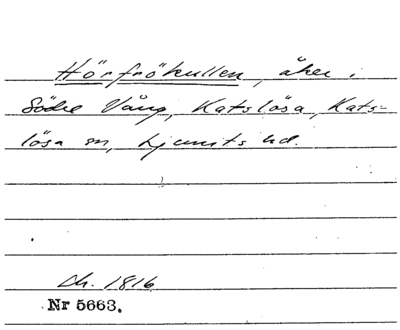 Hörfrökullen, åker i
Södre Vång, Katslösa, Kats-
lösa sn, Ljunits hd.
ch. 1816
Nr 5663.